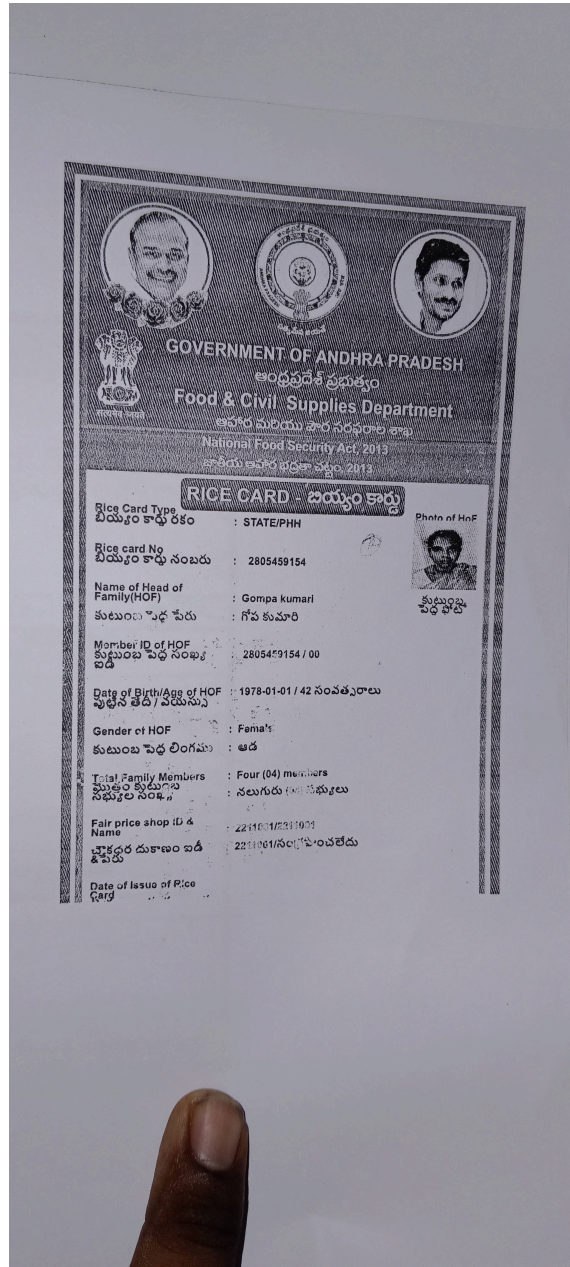 GOVERNMENT OF ANDHRA PRADESH
ఆంధ్రప్రదేశ్ ప్రభుత్వం
Food & Civil Supplies Department
ఆహార మరియు పౌర సరఫరాల శాఖ
National Food Security Act, 2013
జాతీయ ఆహార భద్రతా చట్టం, 2013
RICE CARD - బియ్యం కార్డు
Rice Card Type
బియ్యం కార్డు రకం : STATE/PHH
Photo of HoF
Rice card No
బియ్యం కార్డు నంబరు : 2805459154
కుటుంబ
పెద్ద ఫోటో
Name of Head of
Family(HOF) : Gompa kumari
కుటుంబ పెద్ద పేరు : గోప కుమారి
Member ID of HOF
కుటుంబ పెద్ద సంఖ్య : 2805459154 / 00
ఐడీ
Date of Birth/Age of HOF : 1978-01-01 / 42 సంవత్సరాలు
పుట్టిన తేదీ / వయస్సు
Gender of HOF : Female
కుటుంబ పెద్ద లింగము : ఆడ
Total Family Members : Four (04) members
మొత్తం కుటుంబ
సభ్యుల సంఖ్య : నలుగురు సభ్యులు
Fair price shop ID &
Name :
చౌకధర దుకాణం ఐడీ :
& పేరు
Date of Issue of Rice
Card